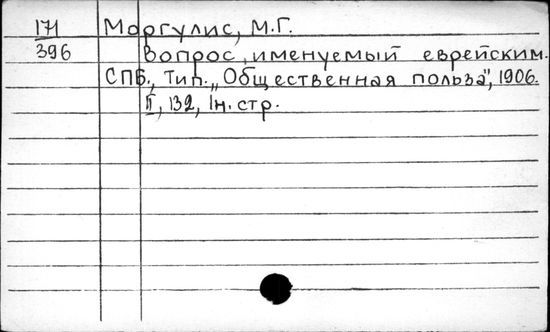 171 Моргулис, М.Г.
396 Вопрос, именуемый еврейским.
СПБ., Тип. „Общественная польза", 1906.
II, 132, 1н. стр.